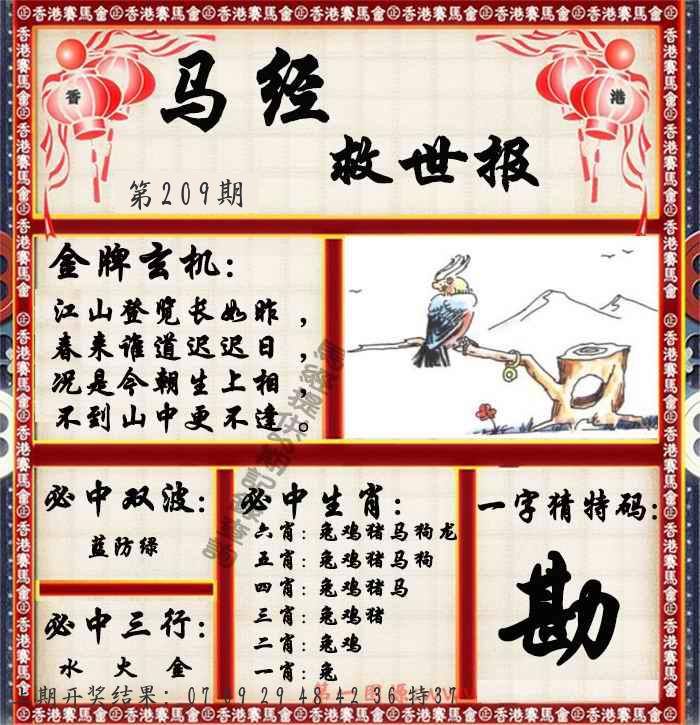 香港赛馬會
香
港
马经
救世报
第209期
金牌玄机：
江山登览长如昨，
春来谁道迟迟日，
况是今朝生上相，
不到山中更不逢。
必中双波：
蓝防绿
必中三行：
水 火 金
必中生肖：
六肖：兔鸡猪马狗龙
五肖：兔鸡猪马狗
四肖：兔鸡猪马
三肖：兔鸡猪
二肖：兔鸡
一肖：兔
一字猜特码：
勘
第一图源
期开奖结果：07 09 29 48 42 36 特37